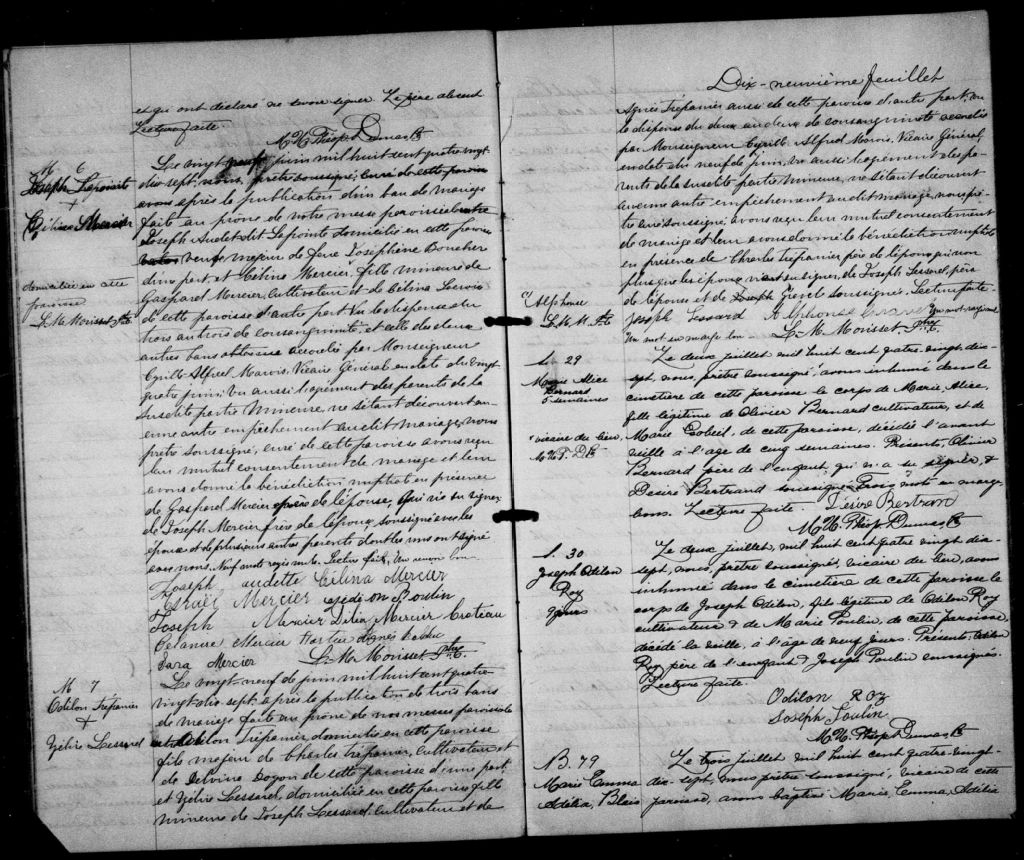 et qui ont déclaré ne savoir signer. Le père absent
Lecture faite.
M. N. Phisp. Dumas Ptre
M 6
Joseph Lapointe
+
Céline Mercier
domiciliée en cette
paroisse
L. M. Morisset Ptre
Le vingt neuf juin mil huit cent quatre vingt
dix sept, nous, prêtre soussigné, curé de cette paroisse
avons après la publication d'un ban de mariage
faite au prône de notre messe paroissiale entre
Joseph Audet dit Lapointe domicilié en cette paroisse
veuf majeur de feue Joséphine Boucher
d'une part, et Céline Mercier, fille mineure de
Gaspard Mercier, cultivateur et de Célina
de cette paroisse d'autre part vu la dispense du
trois au trois de consanguinité, et celle des deux
autres bans accordée par Monseigneur
Cyrille Alfred Marois, Vicaire Général en date du vingt
quatre juin, vu aussi l'agrément des parents de la
susdite partie mineure, ne s'étant découvert au-
cune autre empêchement audit mariage, nous
prêtre soussigné, curé de cette paroisse avons reçu
leur mutuel consentement de mariage et leur
avons donné la bénédiction nuptiale en présence
de Gaspard Mercier père de l'épouse, qui n'a su signer
de Joseph Mercier frère de l'époux, soussigné avec les
époux et de plusieurs autres parents dont les uns ont signé
avec nous. Neuf mots rayés nuls. Lecture faite. Un renvoi bon
Joseph audette Célina Mercier
Mercier Poulin
Joseph Mercier Délia Mercier Croteau
Mercier
Mercier L. M. Morisset Ptre
M 7
Odilon Trépanier
+
Zélire Lessard
Le vingt neuf de juin mil huit cent quatre
vingt dix sept après la publication de trois bans
de mariage faite au prône de nos messes paroissiales
entre Odilon Trépanier, domicilié en cette paroisse
fils majeur de Charles Trépanier, cultivateur et
de Delvina Doyon de cette paroisse d'une part,
et Zélire Lessard, domiciliée en cette paroisse fille
mineure de Joseph Lessard, cultivateur et de
Dix-neuvième feuillet
Agnès Trépanier aussi de cette paroisse d'autre part, vu
la dispense du deux au deux de consanguinité accordée
par Monseigneur Cyrille Alfred Marois, Vicaire Général
en date du neuf de juin, vu aussi l'agrément des pa-
rents de la susdite partie mineure, ne s'étant découvert
aucune autre empêchement audit mariage, nous prê-
tre curé soussigné, avons reçu leur mutuel consentement
de mariage et leur avons donné la bénédiction nuptiale
en présence de Charles Trépanier père de l'époux qui non
plus que les époux n'ont su signer, de Joseph Lessard, père
de l'épouse et de Joseph soussignés. Lecture faite.
Joseph Lessard Alphonse Un mot rayé nul
Un mot en marge bon L. M. Morisset Ptre
Alphonse
L. M. M. Ptre
S. 29
Marie Alice
Bernard
5 semaines
vicaire du lieu,
M. N. P. D. Ptre
Le deux juillet mil huit cent quatre-vingt dix-
sept, nous, prêtre soussigné, avons inhumé dans le
cimetière de cette paroisse le corps de Marie, Alice,
fille légitime de Olivier Bernard cultivateur, et de
Marie Gobeil, de cette paroisse, décédée l'avant
veille à l'âge de cinq semaines. Présents, Olivier
Bernard père de l'enfant, qui n'a su signer, &
Désiré Bertrand soussigné. Trois mots en marge
bons. Lecture faite. Désiré Bertran
M. N. Phisp. Dumas Ptre
S. 30
Joseph Odilon
Roy
9 jours
Le deux juillet, mil huit cent quatre vingt dix-
sept, nous, prêtre soussigné, vicaire du lieu, avons
inhumé dans le cimetière de cette paroisse le
corps de Joseph Odilon, fils légitime de Odilon Roy
cultivateur & de Marie Poulin, de cette paroisse,
décédé la veille, à l'âge de neuf jours. Présents, Odilon
Roy père de l'enfant & Joseph Poulin soussignés.
Lecture faite.
Odilon Roy
Joseph Poulin
M. N. Phisp. Dumas Ptre
B. 79
Marie Emma
Adélia, Blais
Le trois juillet mil huit cent quatre-vingt-
dix-sept, nous prêtre soussigné, vicaire de cette
paroisse, avons baptisé Marie, Emma, Adélia